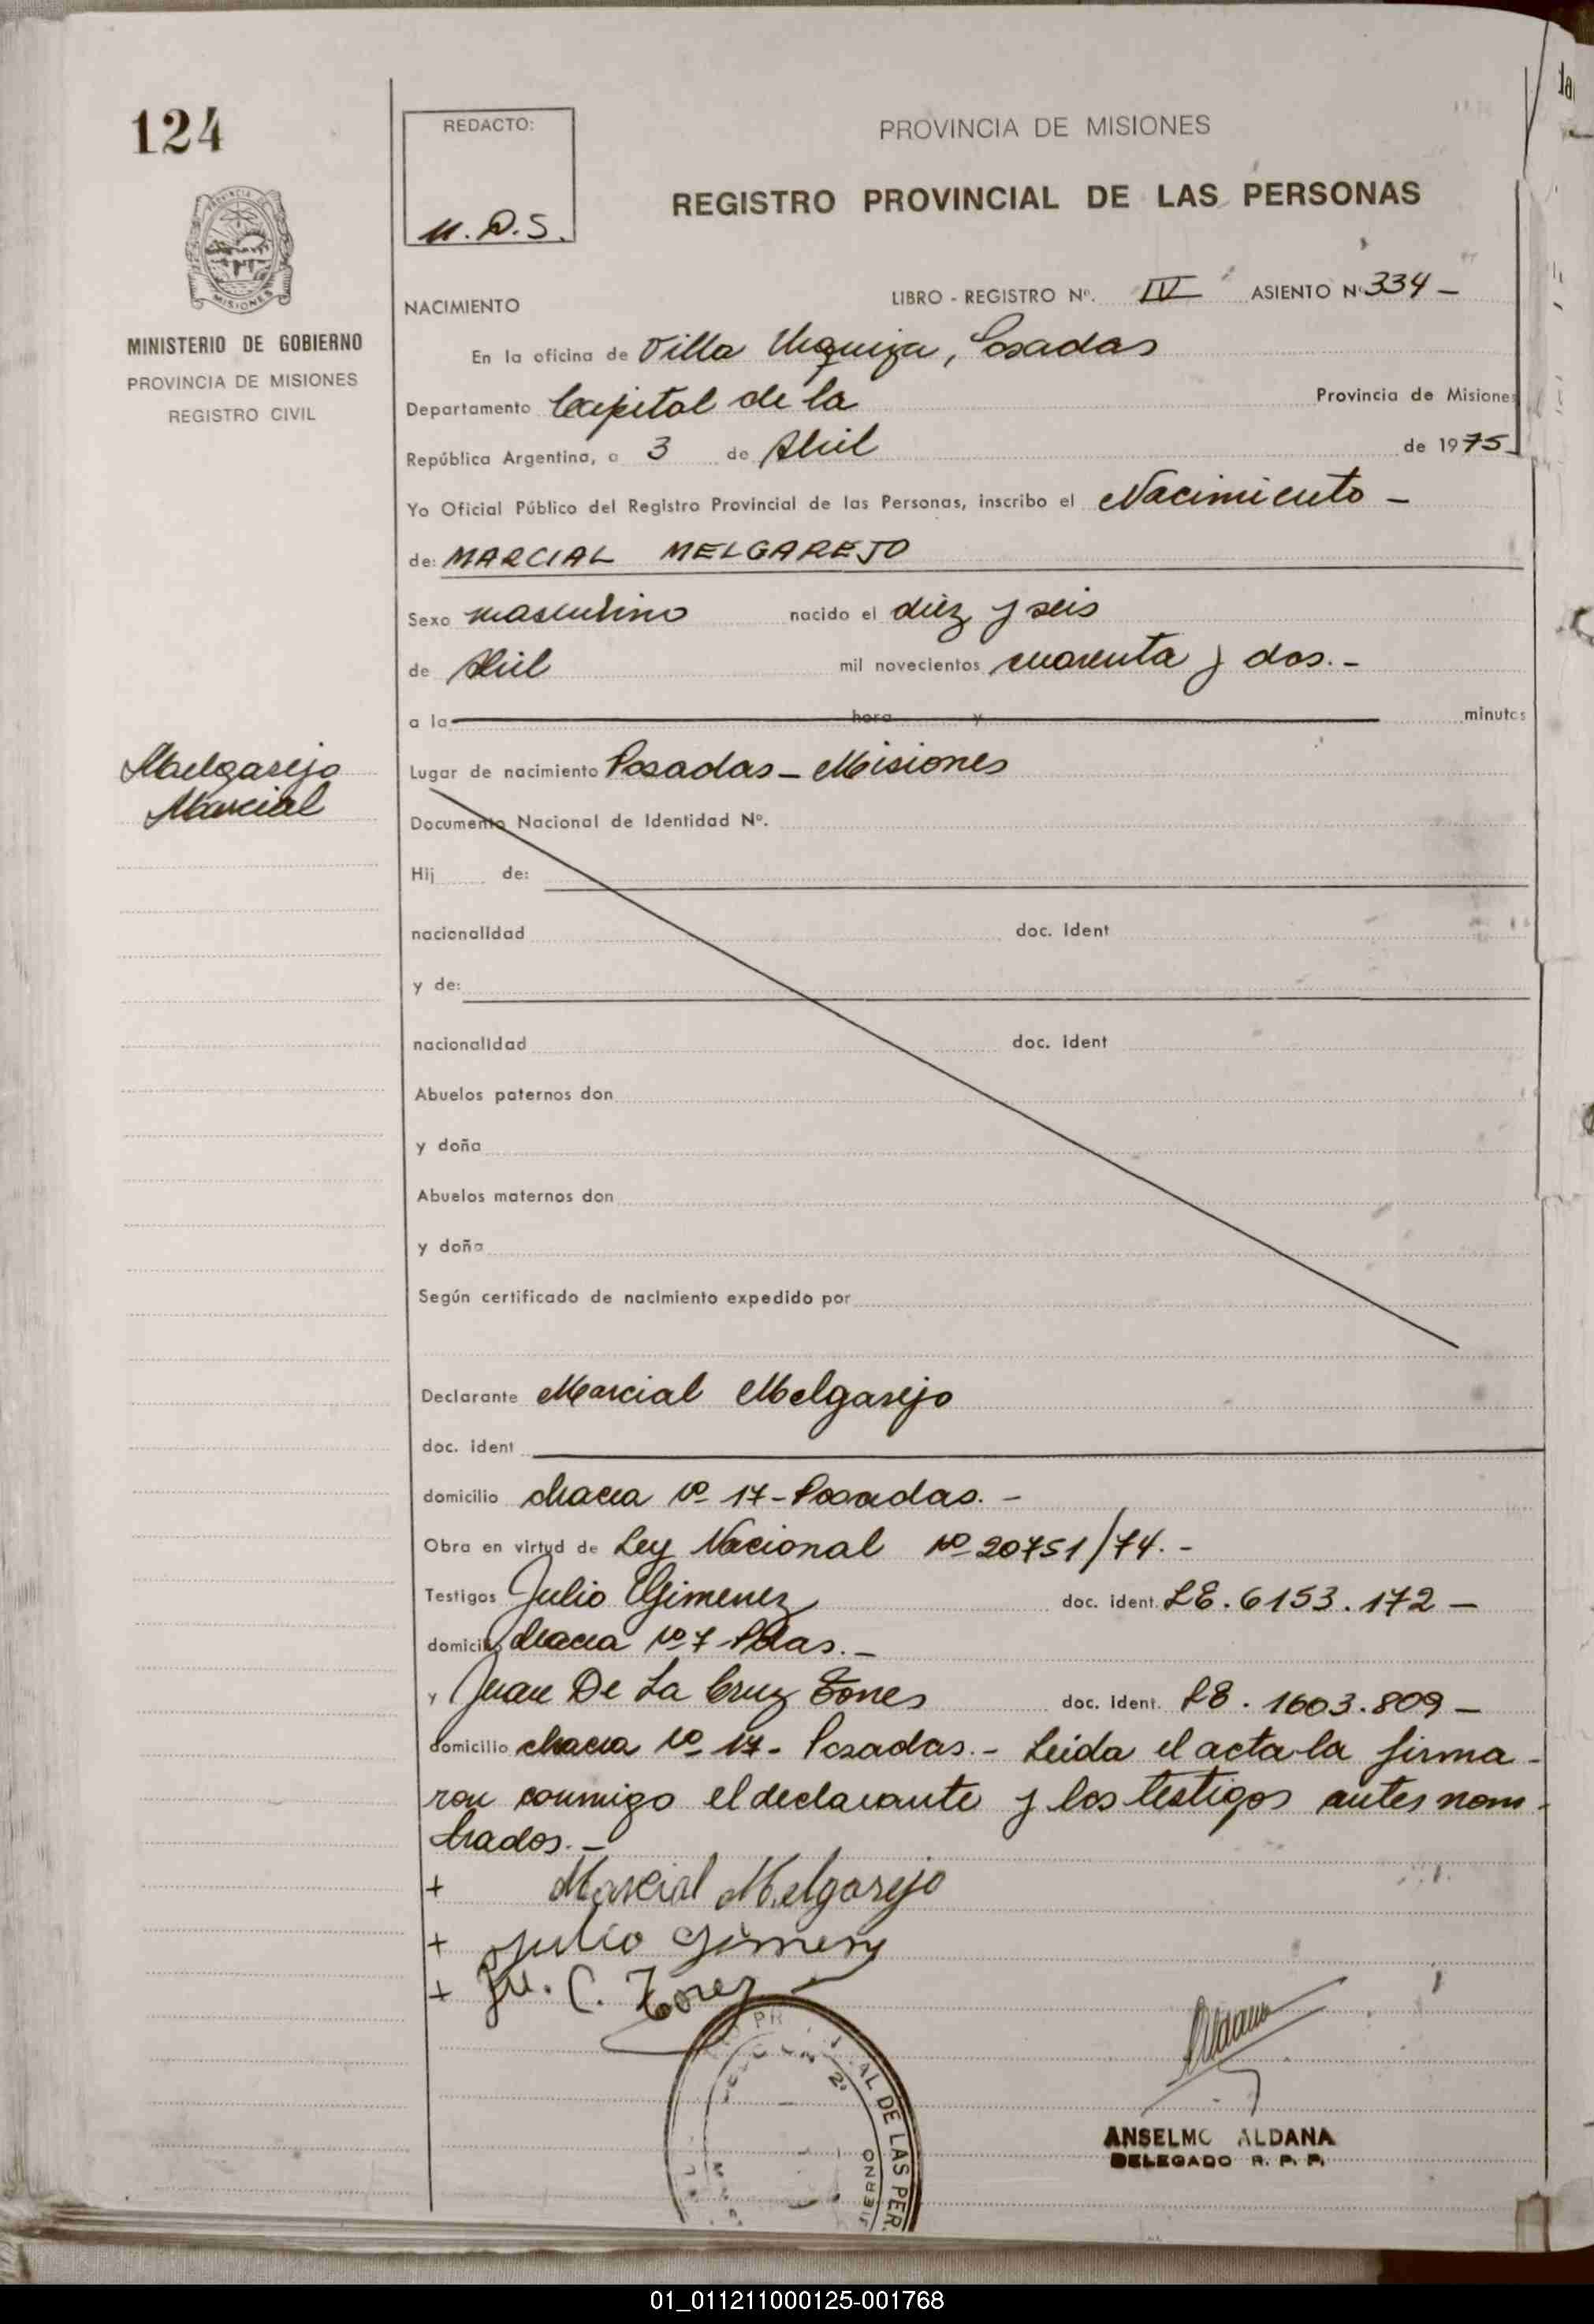 124
REDACTO:
PROVINCIA DE MISIONES
REGISTRO PROVINCIAL DE LAS PERSONAS
MISIONES
MINISTERIO DE GOBIERNO
PROVINCIA DE MISIONES
REGISTRO CIVIL
NACIMIENTO LIBRO - REGISTRO Nº. IV ASIENTO Nº 334 -
En la oficina de Villa Urquiza, Posadas
Departamento Capital de la Provincia de Misiones
República Argentina, a 3 de Abril de 1975
Yo Oficial Público del Registro Provincial de las Personas, inscribo el Nacimiento -
de: MARCIAL MELGAREJO
Sexo masculino nacido el diez y seis
de Abril mil novecientos cuarenta y dos.-
a la hora y minutos
Melgarejo
Marcial
Lugar de nacimiento Posadas - Misiones
Documento Nacional de Identidad Nº.
Hij de:
nacionalidad doc. ident
y de:
nacionalidad doc. ident
Abuelos paternos don
y doña
Abuelos maternos don
y doña
Según certificado de nacimiento expedido por
Declarante Marcial Melgarejo
doc. ident
domicilio chacra Nº 17 - Posadas. -
Obra en virtud de Ley Nacional Nº 20751/74. -
Testigos Julio Gimenez doc. ident. LE. 6153.172 -
domicilio chacra Nº 7 Pdas. -
y Juan De La Cruz doc. ident. LE. 1603.809 -
domicilio chacra Nº 17 - Posadas. - Leida el acta la firma-
ron conmigo el declarante y los testigos antes nom-
brados. -
+ Marcial Melgarejo
+ Julio Gimenz
+ C.
AL DE LAS PER
ANSELMO ALDANA
DELEGADO R. P. P.
01_011211000125-001768